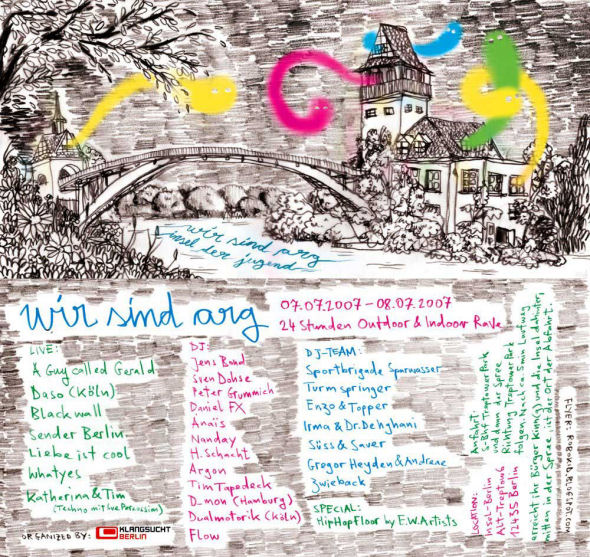 wir sind arg
insel der jugend
wir sind arg
07.07.2007 - 08.07.2007
24 Stunden Outdoor & Indoor Rave
LIVE:
A Guy called Gerald
Daso (Köln)
Blackwall
Sender Berlin
Liebe ist cool
Whatyes
Katharina & Tim
(Techno mit live Percussion)
ORGANIZED BY:
KLANGSUCHT
BERLIN
DJ:
Jens Bond
Sven Dohse
Peter Grummich
Daniel FX
Anaïs
Nanday
H. Schacht
Argon
Tim Tapedeck
D-mon (Hamburg)
Dualmotorik (Köln)
Flow
DJ-TEAM:
Sportbrigade Sparwasser
Turmspringer
Enzo & Topper
Irma & Dr. Dehghani
Süss & Sauer
Gregor Heyden & Andreae
Zwieback
SPECIAL:
HipHopFloor by E.W.Artists
LOCATION:
Insel-Berlin
Alt-Treptow 6
12435 Berlin
Anfahrt:
S-Bhf Treptower Park
und dann der Spree
Richtung Treptower Park
folgen. Nach ca. 5min Laufweg
erreicht ihr Bürger Kinn(g) und die Insel dahinter,
mitten in der Spree, ist der Ort der Abfahrt.
FLYER: ROBOK-B.BLOGSPOT.COM